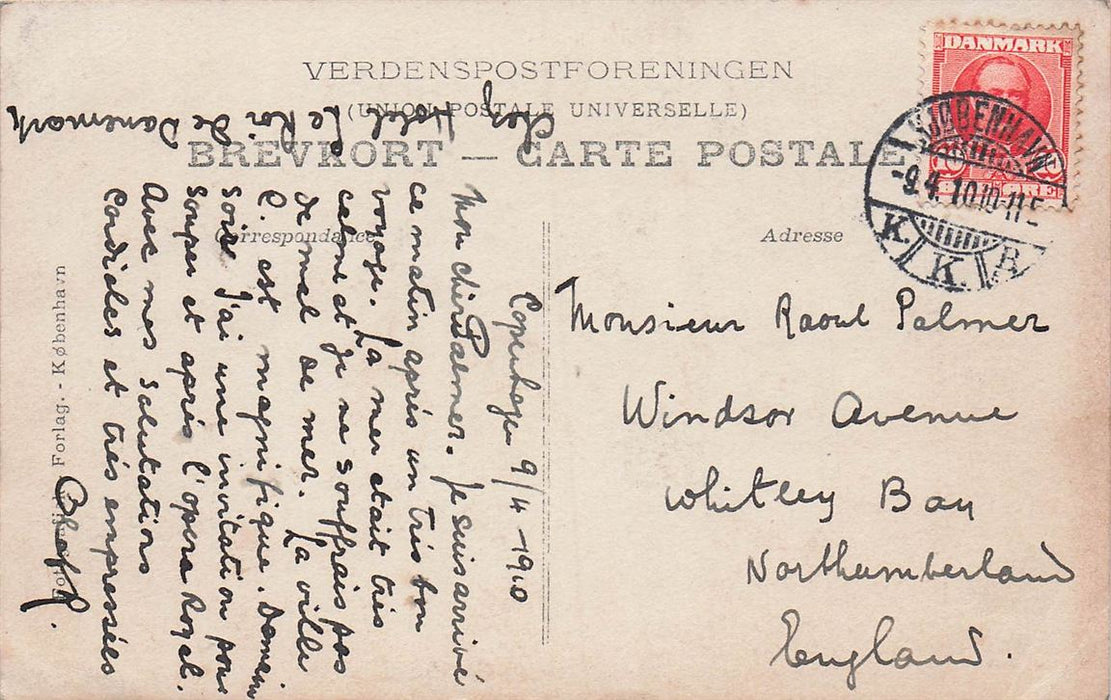 VERDENSPOSTFORENINGEN
(UNION POSTALE UNIVERSELLE)
BREVKORT — CARTE POSTALE
DANMARK
10 ØRE
KJØBENHAVN
-9.4.10 10-11 F
K. K. B.
Correspondance
Adresse
Monsieur Raoul Palmer
Windsor Avenue
Whitley Bay
Northumberland
England.
Chez
Hotel
Le Roi
de Danemark
Copenhagen 9/4-1910
Mon cher Palmer. Je suis arrivé
ce matin après un très bon
voyage. La mer etait très
calme et je ne souffrais pas
de mal de mer. La ville
C. est magnifique. Demain
soir J'ai une invitation pour
souper et après l'opera Royal.
Avec mes salutations
Cordiales et très empressées
Forlag. - København